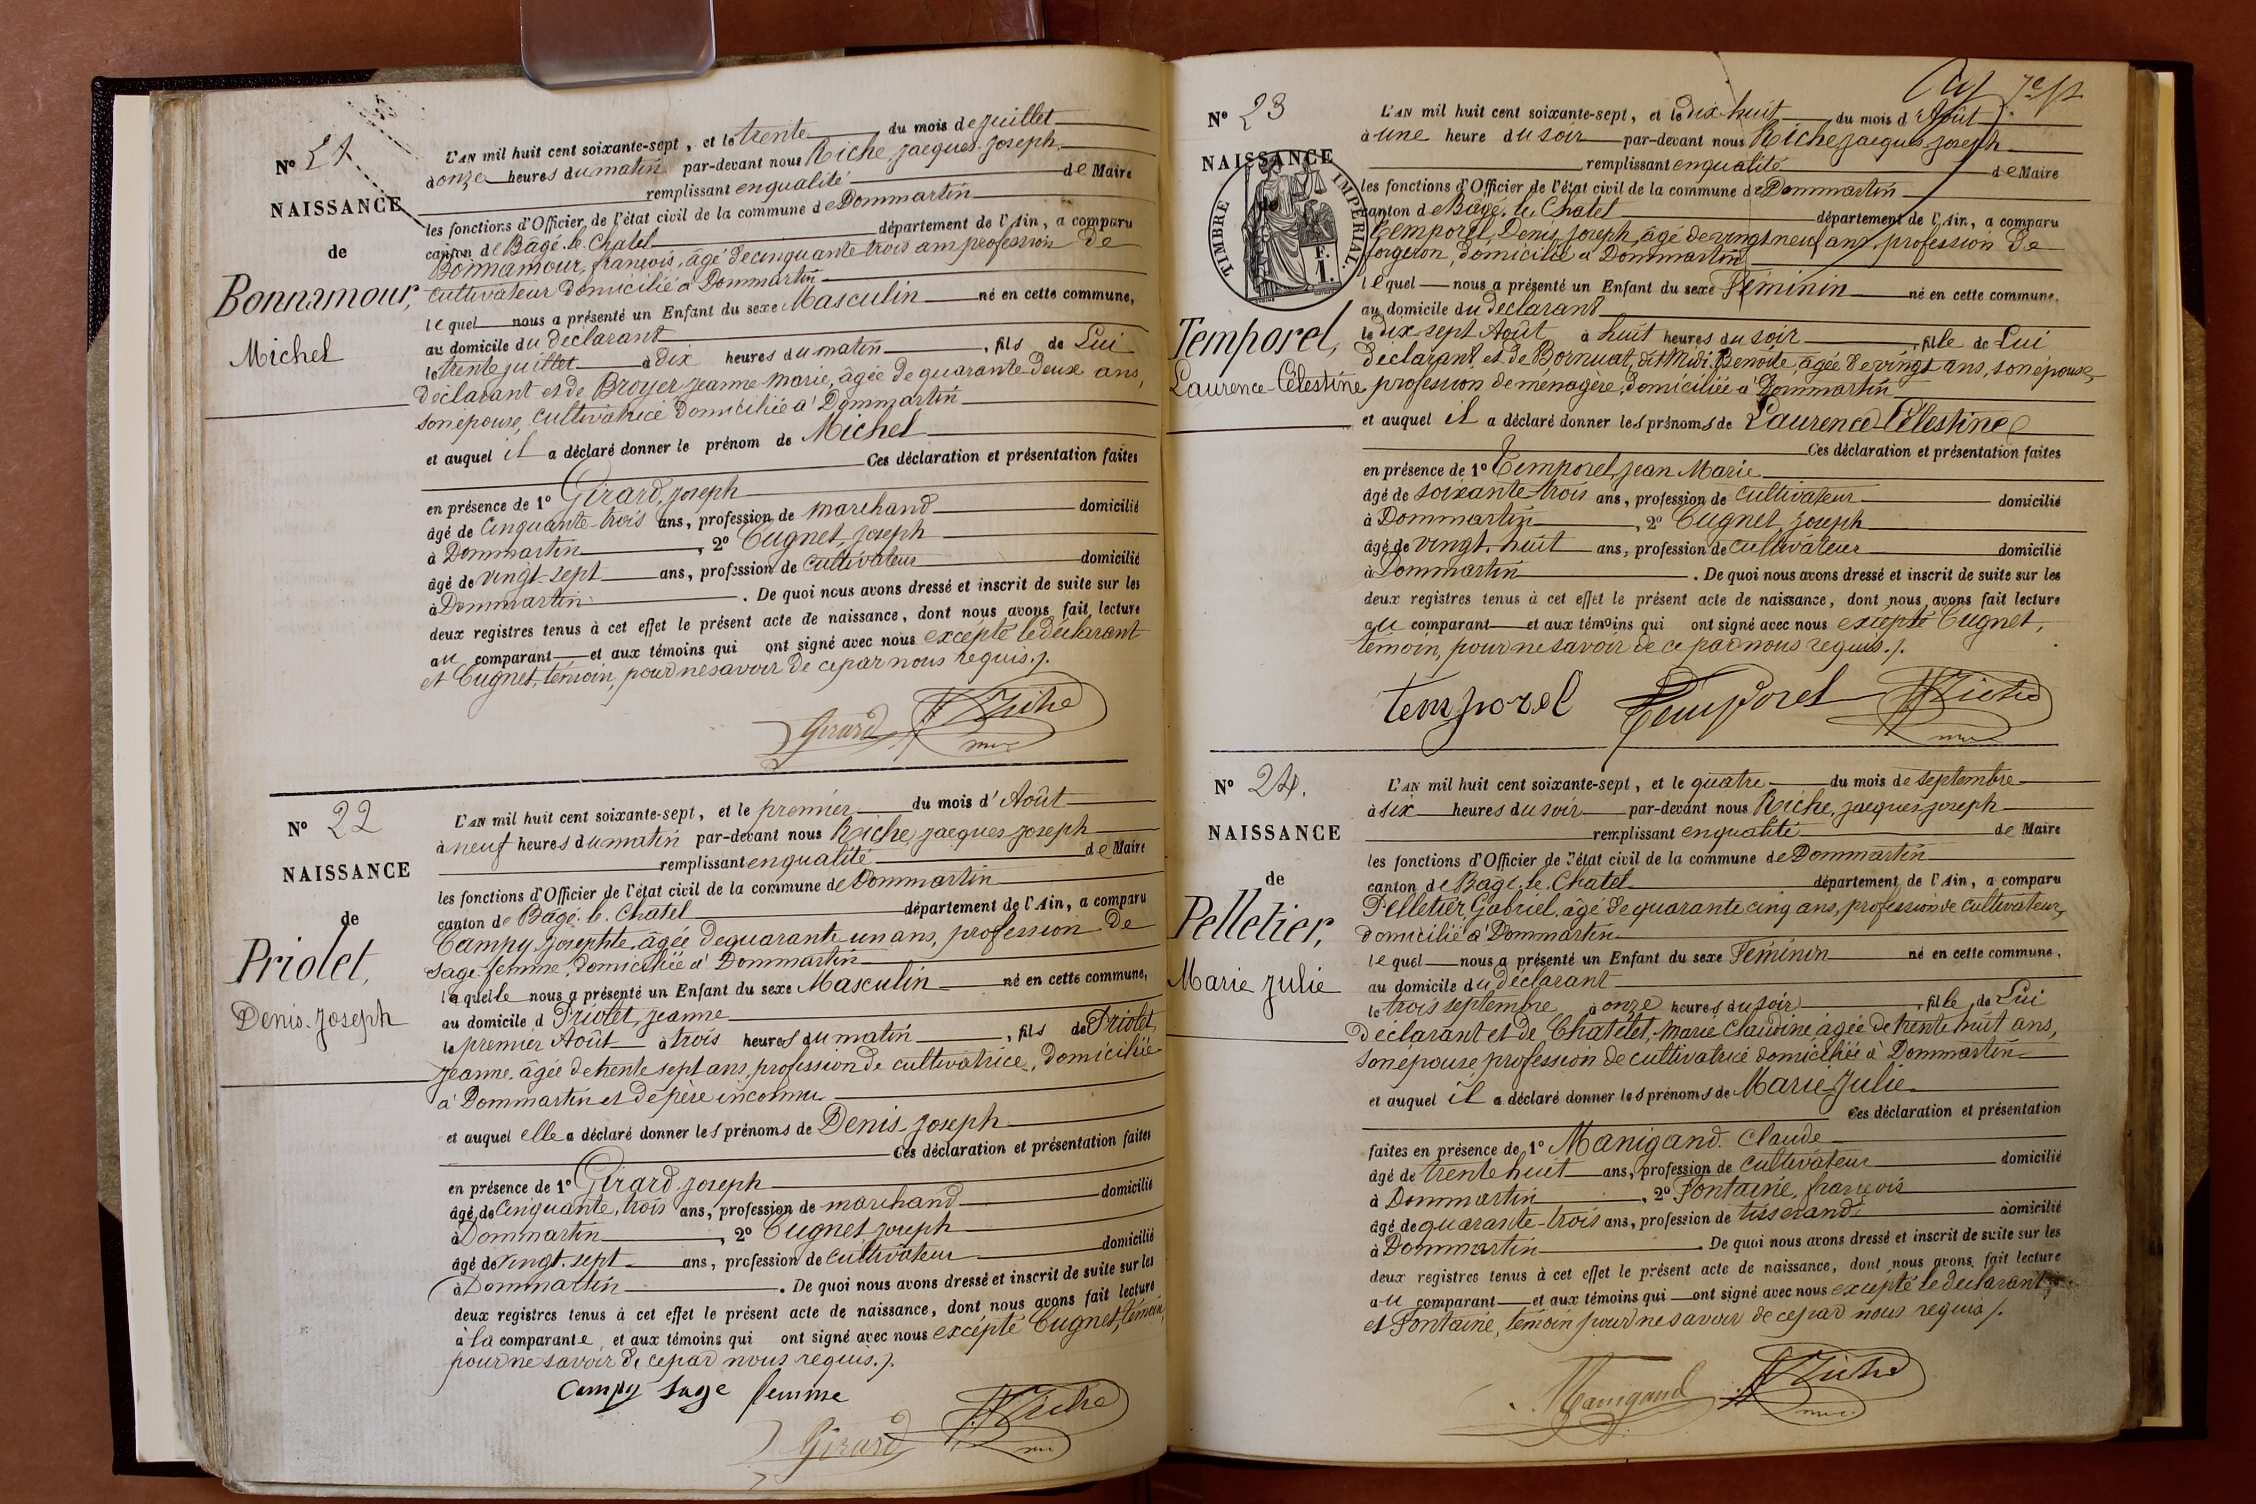 N° 21
NAISSANCE
de
Bonnamour,
Michel
L'AN mil huit cent soixante-sept, et le trente du mois de juillet
à onze heures du matin par-devant nous Riche, Jacques Joseph
remplissant en qualité de Maire
les fonctions d'Officier de l'état civil de la commune de Dommartin
canton de Bâgé-le-Chatel département de l'Ain, a comparu
Bonnamour, françois, âgé de cinquante-trois ans profession de
cultivateur domicilié à Dommartin
lequel nous a présenté un Enfant du sexe Masculin né en cette commune,
au domicile du déclarant
le trente juillet à dix heures du matin, fils de Lui
déclarant et de Broyer Jeanne-Marie, âgée de quarante-deux ans,
son épouse, cultivatrice domiciliée à Dommartin
et auquel il a déclaré donner le prénom de Michel
Ces déclaration et présentation faites
en présence de 1° Girard, Joseph
âgé de cinquante-trois ans, profession de marchand domicilié
à Dommartin, 2° Cugnet, Joseph
âgé de vingt-sept ans, profession de cultivateur domicilié
à Dommartin. De quoi nous avons dressé et inscrit de suite sur les
deux registres tenus à cet effet le présent acte de naissance, dont nous avons fait lecture
au comparant et aux témoins qui ont signé avec nous excepté le déclarant
et Cugnet, témoin, pour ne savoir de ce par nous requis.
Girard Riche
N° 22
NAISSANCE
de
Priolet,
Denis-Joseph
L'AN mil huit cent soixante-sept, et le premier du mois d'Août
à neuf heures du matin par-devant nous Riche, Jacques Joseph
remplissant en qualité de Maire
les fonctions d'Officier de l'état civil de la commune de Dommartin
canton de Bâgé-le-Chatel département de l'Ain, a comparu
Campy, Josephte, âgée de quarante un ans, profession de
sage-femme, domiciliée à Dommartin
laquelle nous a présenté un Enfant du sexe Masculin né en cette commune,
au domicile d Priolet, Jeanne
le premier Août à trois heures du matin, fils de Priolet,
Jeanne, âgée de trente sept ans, profession de cultivatrice, domiciliée
à Dommartin et de père inconnu
et auquel elle a déclaré donner les prénoms de Denis-Joseph
Ces déclaration et présentation faites
en présence de 1° Girard, Joseph
âgé de cinquante-trois ans, profession de marchand domicilié
à Dommartin, 2° Cugnet, Joseph
âgé de vingt-sept ans, profession de cultivateur domicilié
à Dommartin. De quoi nous avons dressé et inscrit de suite sur les
deux registres tenus à cet effet le présent acte de naissance, dont nous avons fait lecture
à la comparante et aux témoins qui ont signé avec nous excépté Cugnet, témoin,
pour ne savoir de ce par nous requis.
Campy sage femme
Girard Riche
N° 23
NAISSANCE
de
TIMBRE IMPERIAL
Temporel,
Laurence-Célestine
L'AN mil huit cent soixante-sept, et le dix-huit du mois d'Août
à une heure du soir par-devant nous Riche, Jacques Joseph
remplissant en qualité de Maire
les fonctions d'Officier de l'état civil de la commune de Dommartin
canton de Bâgé-le-Chatel département de l'Ain, a comparu
Temporel, Denis Joseph, âgé de vingt neuf ans, profession de
forgeron, domicilié à Dommartin
lequel nous a présenté un Enfant du sexe Féminin né en cette commune,
au domicile du déclarant
le dix-sept Août à huit heures du soir, fille de Lui
déclarant, et de Bornuat, dit Midi, Benoite, âgée de vingt ans, son épouse,
profession de ménagère, domiciliée à Dommartin
et auquel il a déclaré donner les prénoms de Laurence-Célestine
Ces déclaration et présentation faites
en présence de 1° Temporel, Jean Marie
âgé de soixante-trois ans, profession de cultivateur domicilié
à Dommartin, 2° Cugnet, Joseph
âgé de vingt-huit ans, profession de cultivateur domicilié
à Dommartin. De quoi nous avons dressé et inscrit de suite sur les
deux registres tenus à cet effet le présent acte de naissance, dont nous avons fait lecture
au comparant et aux témoins qui ont signé avec nous excepté Cugnet,
témoin, pour ne savoir de ce par nous requis.
temporel Temporel Riche
N° 24.
NAISSANCE
de
Pelletier,
Marie Julie
L'AN mil huit cent soixante-sept, et le quatre du mois de septembre
à six heures du soir par-devant nous Riche, Jacques Joseph
remplissant en qualité de Maire
les fonctions d'Officier de l'état civil de la commune de Dommartin
canton de Bâgé-le-Chatel département de l'Ain, a comparu
Pelletier, Gabriel, âgé de quarante cinq ans, profession de cultivateur,
domicilié à Dommartin
lequel nous a présenté un Enfant du sexe Féminin né en cette commune,
au domicile du déclarant
le trois septembre à onze heures du soir, fille de Lui
déclarant et de Chatelet, Marie Claudine âgée de trente huit ans,
son épouse profession de cultivatrice domiciliée à Dommartin
et auquel il a déclaré donner les prénoms de Marie Julie
Ces déclaration et présentation
faites en présence de 1° Manigand Claude
âgé de trente huit ans, profession de cultivateur domicilié
à Dommartin, 2° Fontaine, françois
âgé de quarante-trois ans, profession de tisserand domicilié
à Dommartin. De quoi nous avons dressé et inscrit de suite sur les
deux registres tenus à cet effet le présent acte de naissance, dont nous avons fait lecture
au comparant et aux témoins qui ont signé avec nous excepté le déclarant
et Fontaine, témoin pour ne savoir de ce par nous requis.
Manigand Riche